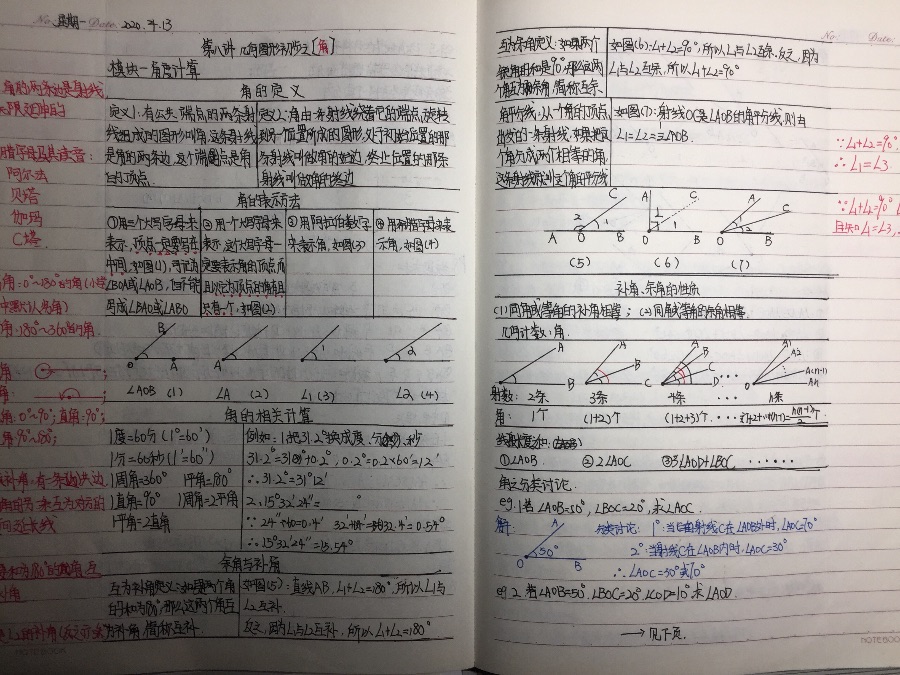 星期一 2020.4.13
第八讲 几何图形初步之[角]
模块一 角度计算
角的定义
定义1:有公共端点的两条射
线组成的图形叫角,这条射线
是角的两条边,这个端点是角
的顶点.
定义2:角由一条射线绕着它的端点旋转
到另一位置所成的图形,处于初始位置的那
条射线叫做角的始边,终止位置的那条
射线叫做角的终边
角的表示方法
①用三个大写字母来
表示,顶点一定要写在
中间,如图(1),可记为
∠BOA或∠AOB,但不能
写成∠BAO或∠ABO
②用一个大写字母来
表示,这个大写字母一
定要表示角的顶点,而
且以它为顶点的角有且
只有一个,如图(2).
③用阿拉伯数字
来表示角,如图(3)
④用希腊字母来表
示角,如图(4)
B
O A
A
1
2
∠AOB (1) ∠A (2) ∠1 (3) ∠2 (4)
角的相关计算
1度=60分(1°=60′)
1分=60秒(1′=60″)
1周角=360° 1平角=180°
1直角=90° 1周角=2平角
1平角=2直角
例如:1.把31.2°换成度、分、秒
31.2°=31°+0.2°, 0.2°=0.2×60′=12′
∴31.2°=31°12′
2. 15°32′24″= °
∵24″÷60=0.4′ 32.4′=0.54°
∴15°32′24″=15.54°
余角与补角
互为补角定义:如果两个角
的和为180°,那么这两个角互
为补角,简称互补.
如图(5):直线AB, ∠1+∠2=180°,所以∠1与
∠2互补.
反之,因为∠1与∠2互补,所以∠1+∠2=180°
角的两条边是射线
无限延伸的
阿尔法
贝塔
伽玛
互为余角定义:如果两个
角的和是90°,那么这两
个角互为余角,简称互余.
如图(6):∠1+∠2=90°,所以∠1与∠2互余.反之,因为
∠1与∠2互余,所以∠1+∠2=90°
角平分线:从一个角的顶点
出发的一条射线,如果把
个角分成两个相等的角,
这条射线就叫这个角的平分线
如图(7):射线OC是∠AOB的角平分线,则有
∠1=∠2=
∵∠1+∠2=90°.
∴∠1=∠3
A O B C 2 1
A C O B 1 2
A C O B 1 2
(5) (6) (7)
补角、余角的性质
(1)同角或等角的补角相等; (2)同角或等角的余角相等.
几何计数:角.
A B
A B C
A B C D
···
A1 A2 A(n-1) An O
射数: 2条 3条 4条 n条
角: 1个 (1+2)个 (1+2+3)个 ···
①∠AOB. ②2∠AOC ③3∠AOD+∠BOC ······
角之分类讨论.
eg.1 若∠AOB=50°,∠BOC=20°,求∠AOC
解: 分类讨论: 1°:当射线C在∠AOB外时,∠AOC=70°
A O 50° B
2°:当射线C在∠AOB内时,∠AOC=30°
∴∠AOC=30°或70°
eg.2. 若∠AOB=50°,∠BOC=20°,∠COD=10°,求∠AOD.
→见下页.